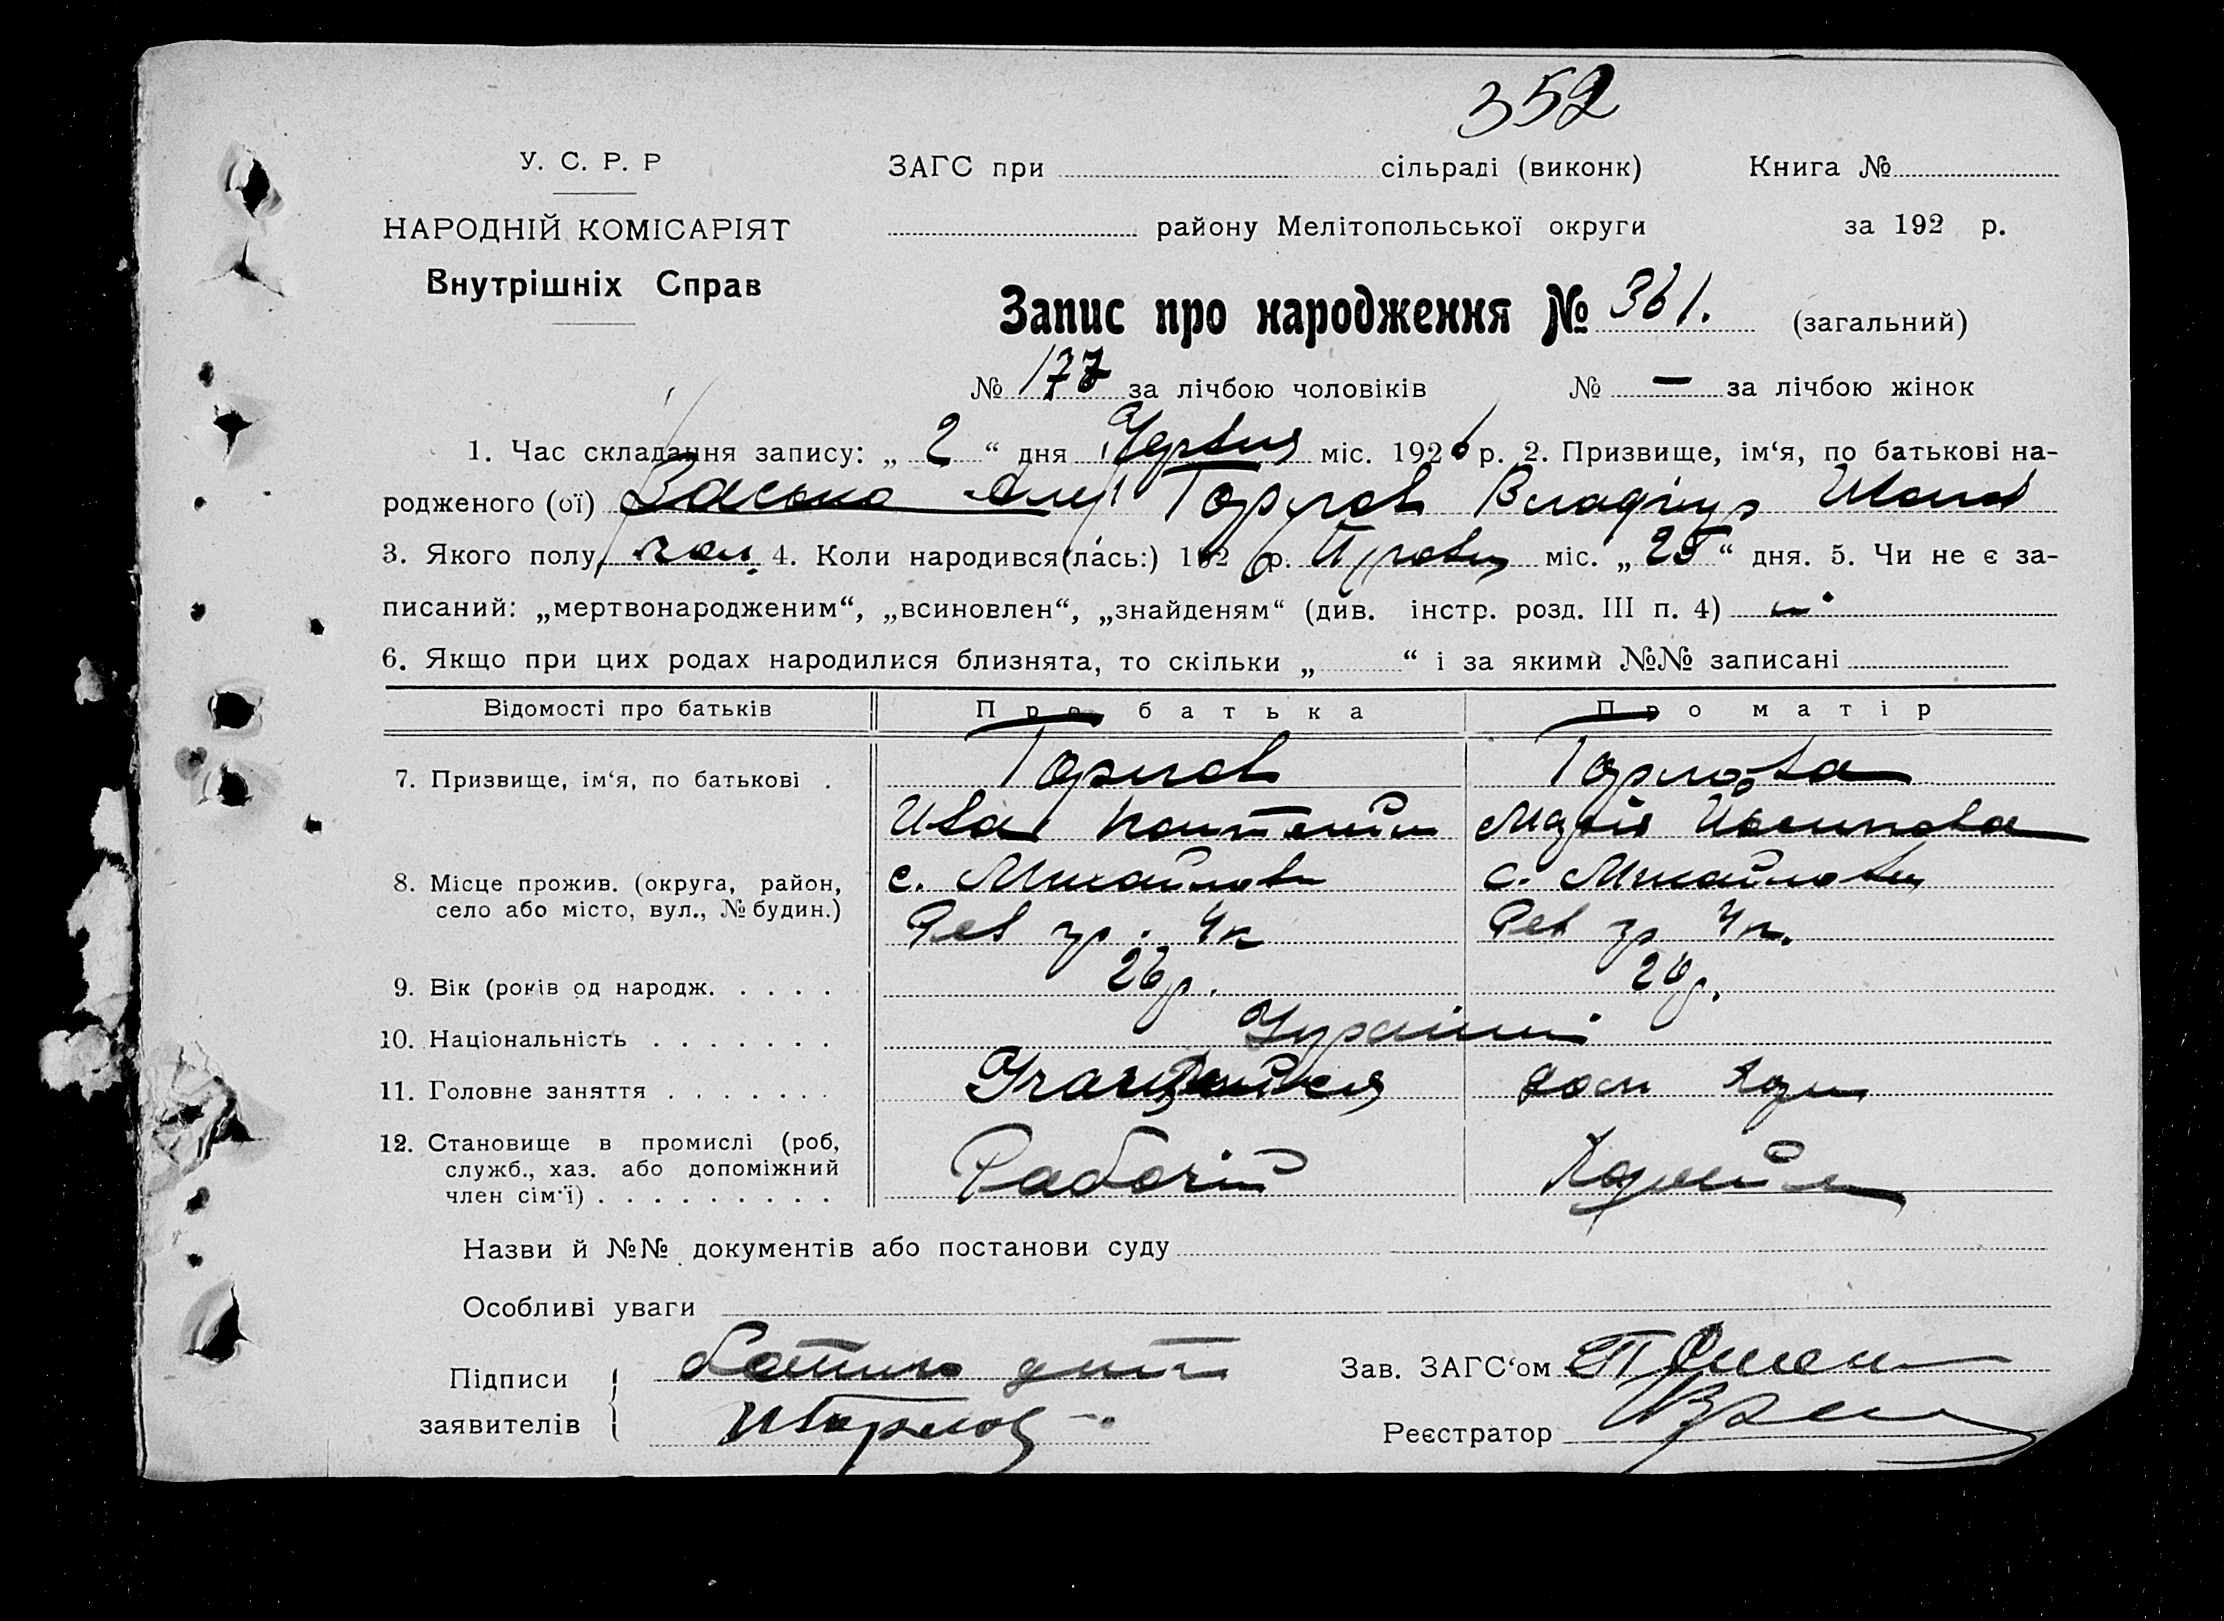 352
У. С. Р. Р
ЗАГС при сільраді (виконк) Книга №
НАРОДНІЙ КОМІСАРІЯТ
району Мелітопольської округи за 192 р.
Внутрішніх Справ
Запис про народження № 361. (загальний)
№ 177 за лічбою чоловіків № — за лічбою жінок
1. Час складання запису: „ 2 “ дня Червня міс. 1926 р. 2. Призвище, ім‘я, по батькові на-
родженого (ої) Горлов Владімір Иванов
3. Якого полу чол. 4. Коли народився(лась:) 192 6 р. міс. „ 25 “ дня. 5. Чи не є за-
писаний: „мертвонародженим“, „всиновлен“, „знайденям“ (див. інстр. розд. III п. 4)
6. Якщо при цих родах народилися близнята, то скільки „ “ і за якими №№ записані
Відомості про батьків Про батька Про матір
7. Призвище, ім‘я, по батькові . Горлов Горлова
Иван Марія Иосиповна
8. Місце прожив. (округа, район, с. Михайлівка с. Михайлівка
село або місто, вул., № будин.)
Рев гр. 4к Рев гр 4к.
9. Вік (років од народж. . . . . 26 р. 26 р.
10. Національність . . . . . . . Українці
11. Головне заняття . . . . . . . дом хазя
12. Становище в промислі (роб,
служб., хаз. або допоміжний Рабочій
член сім‘ї) . . . . . . . . .
Назви й №№ документів або постанови суду
Особливі уваги
Підписи Зав. ЗАГС‘ом
заявителів ИГорлов Реєстратор